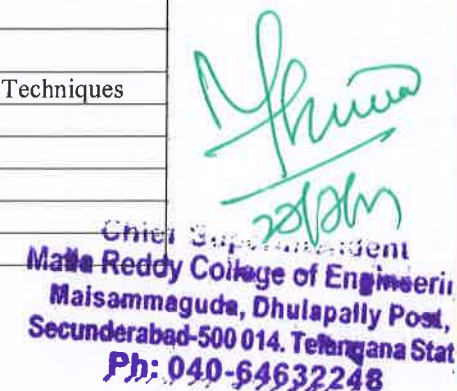 Techniques
Chief Superintendent
Malla Reddy College of Engineerin
Maisammaguda, Dhulapally Post,
Secunderabad-500 014. Telangana Stat
Ph: 040-64632248